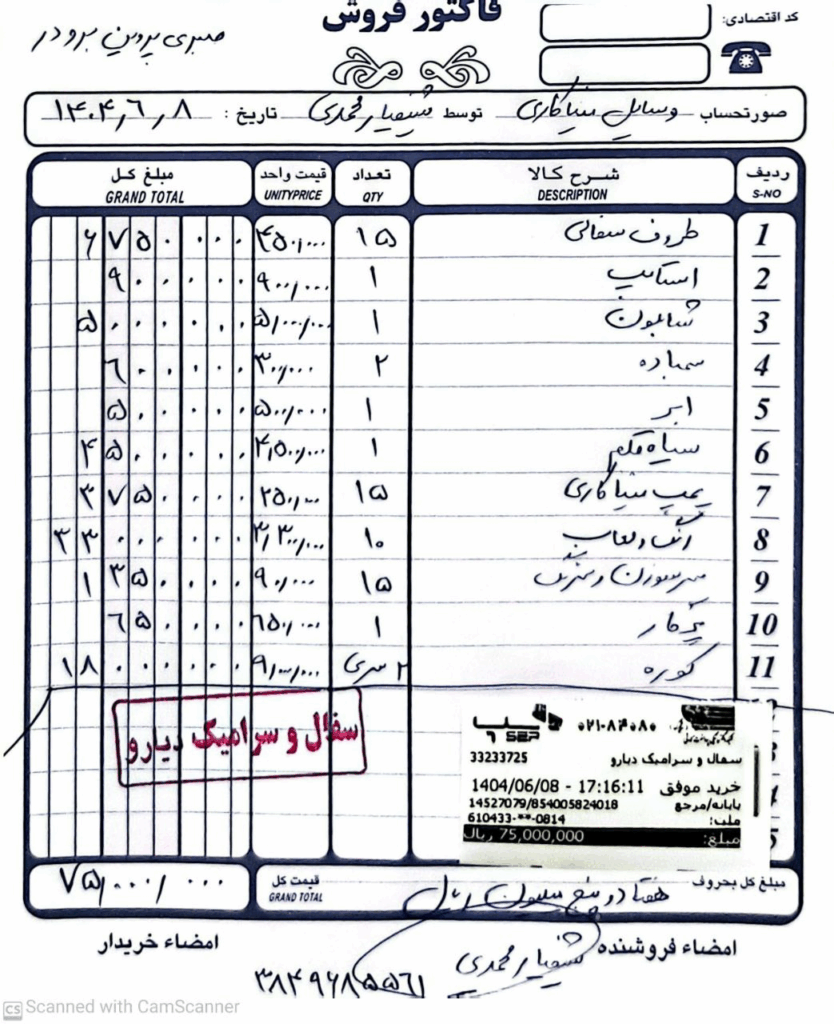 فاکتور فروش
کد اقتصادی:
صبری پروین برودر
صورتحساب وسایل میناکاری توسط محمدی تاریخ: ۱۴۰۴٫۶٫۸
ردیف S-NO شرح کالا DESCRIPTION تعداد QTY قیمت واحد UNITYPRICE مبلغ کل GRAND TOTAL
1 ظروف سفالی ۱۵ ۴۵۰٫۰۰۰ ۶۷۵۰۰۰۰
2 استامپ ۱ ۹۰۰٫۰۰۰ ۹۰۰۰۰۰
3 شابلون ۱ ۵٫۰۰۰٫۰۰۰ ۵۰۰۰۰۰۰
4 سمباده ۲ ۳۰۰٫۰۰۰ ۶۰۰۰۰۰
5 ابر ۱ ۵۰۰٫۰۰۰ ۵۰۰۰۰۰
6 سیاه قلم ۱ ۴٫۵۰۰٫۰۰۰ ۴۵۰۰۰۰۰
7 پمپ میناکاری ۱۵ ۲۵۰٫۰۰۰ ۳۷۵۰۰۰۰
8 رنگ و لعاب ۱۰ ۳٫۳۰۰٫۰۰۰ ۳۳۰۰۰۰۰۰
9 سرسوزن و سرنگ ۱۵ ۹۰٫۰۰۰ ۱۳۵۰۰۰۰
10 پرگار ۱ ۶۵۰٫۰۰۰ ۶۵۰۰۰۰
11 کوره ۲ سری ۹٫۰۰۰٫۰۰۰ ۱۸۰۰۰۰۰۰
سفال و سرامیک دیارو
سپ SEP ۰۲۱-۸۴۰۸۰
33233725 سفال و سرامیک دیارو
خرید موفق 1404/06/08 - 17:16:11
پایانه/مرجع 14527079/854005824018
ملت: 610433-**-0814
مبلغ: 75,000,000 ریال
مبلغ کل بحروف هفتاد و پنج میلیون ریال قیمت کل GRAND TOTAL ۷۵٫۰۰۰٫۰۰۰
امضاء فروشنده محمدی امضاء خریدار
۳۸۴۹۶۸۵۵۶۱
CS Scanned with CamScanner